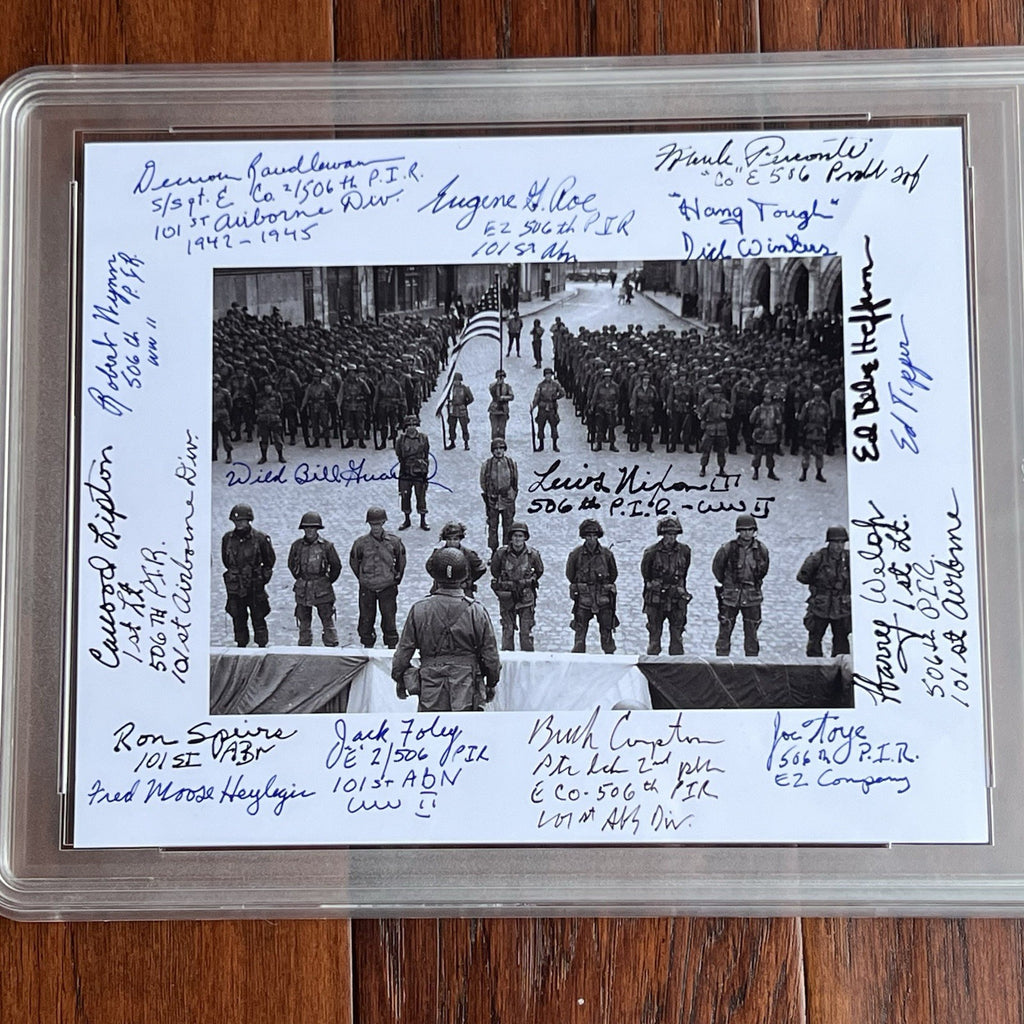 S/Sgt. E Co. 2/506th P.I.R.
101ST Airborne Div.
1942-1945
Eugene G. Roe
E2 506th PIR
101st Abn
Frank Perconte
"Co" E 506
"Hang Tough"
Dick Winters
Robert Wynn
506th P.I.R
WW II
Ed Babe Heffron
Ed Tipper
Wild Bill
Lewis Nixon III
506th P.I.R. - WW II
Carwood Lipton
1st Lt
506TH P.I.R.
101st Airborne Div.
Harry Welsh
1st Lt.
506th PIR
101st Airborne
Ron Speirs
101ST ABN
Fred Moose Heyligir
Jack Foley
'E' 2/506 PIR
101ST ABN
WW II
Buck Compton
2nd
E Co. 506th PIR
101st Div.
Joe Toye
506th P.I.R.
E2 Company